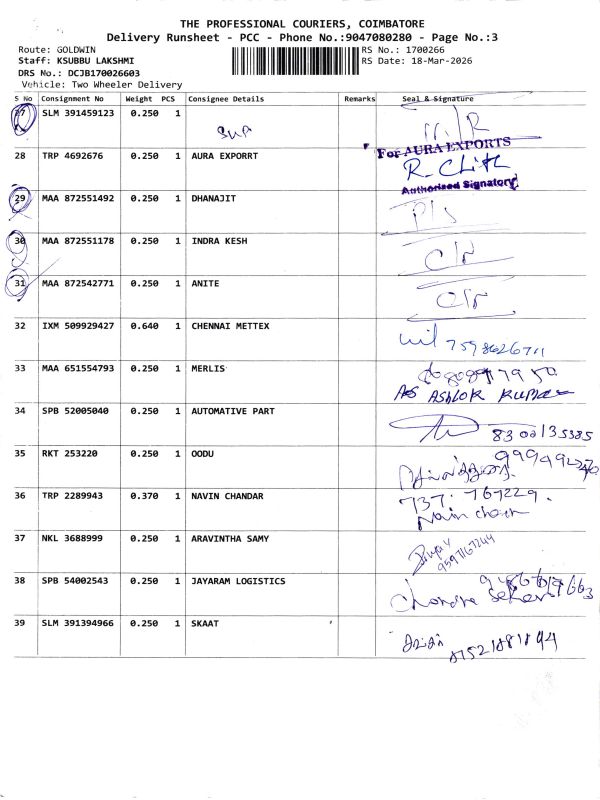 THE PROFESSIONAL COURIERS, COIMBATORE
Delivery Runsheet - PCC - Phone No.:9047080280 - Page No.:3
Route: GOLDWIN
RS No.: 1700266
Staff: KSUBBU LAKSHMI
RS Date: 18-Mar-2026
DRS No.: DCJB170026603
Vehicle: Two Wheeler Delivery
S No Consignment No Weight PCS Consignee Details Remarks Seal & Signature
27 SLM 391459123 0.250 1
28 TRP 4692676 0.250 1 AURA EXPORRT
For AURA EXPORTS
Authorised Signatory
29 MAA 872551492 0.250 1 DHANAJIT
30 MAA 872551178 0.250 1 INDRA KESH
31 MAA 872542771 0.250 1 ANITE
32 IXM 509929427 0.640 1 CHENNAI METTEX
7598626711
33 MAA 651554793 0.250 1 MERLIS
ASHLOK KUMAR
34 SPB 52005040 0.250 1 AUTOMATIVE PART
8300135385
35 RKT 253220 0.250 1 OODU
36 TRP 2289943 0.370 1 NAVIN CHANDAR
737. 767229.
37 NKL 3688999 0.250 1 ARAVINTHA SAMY
9597167244
38 SPB 54002543 0.250 1 JAYARAM LOGISTICS
Chandra Sekar
39 SLM 391394966 0.250 1 SKAAT